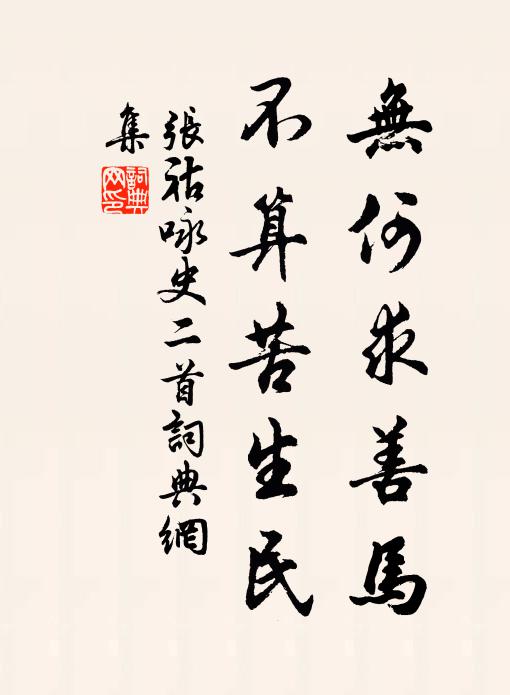 無何求善馬
不算苦生民
張祜咏史二首詞典網
集
詞典网印